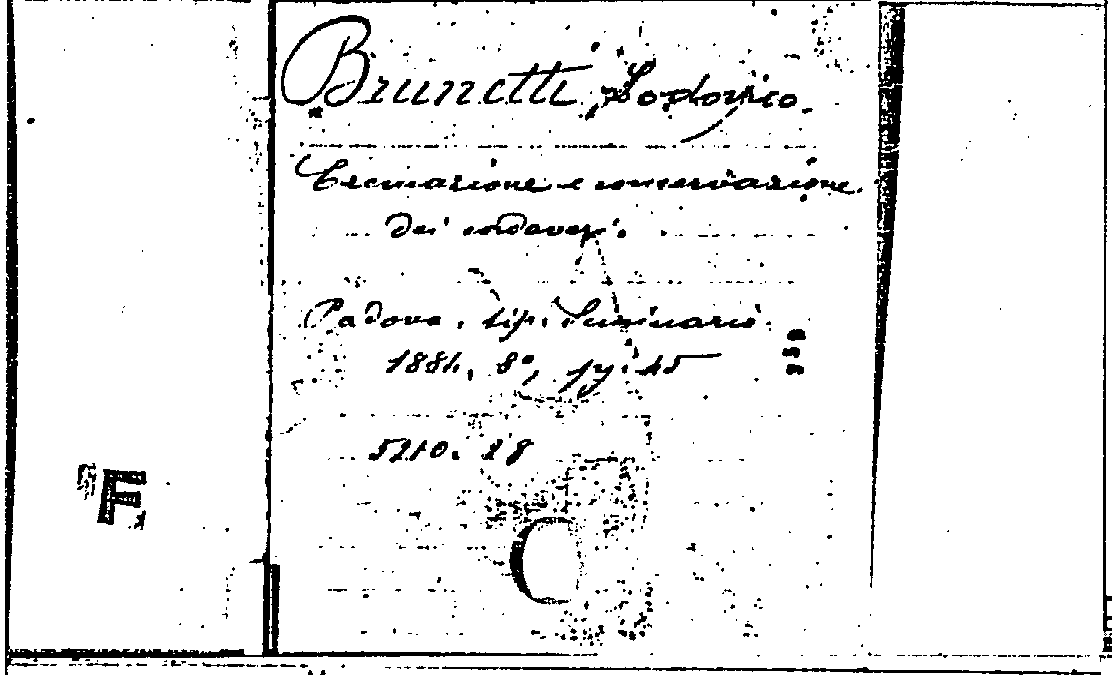 Brunetti, Lodovico.
Cremazione e conservazione
dei cadaveri.
Padova, tip. Seminario
1881, 8°, pg. 45
5210. 28
F
C